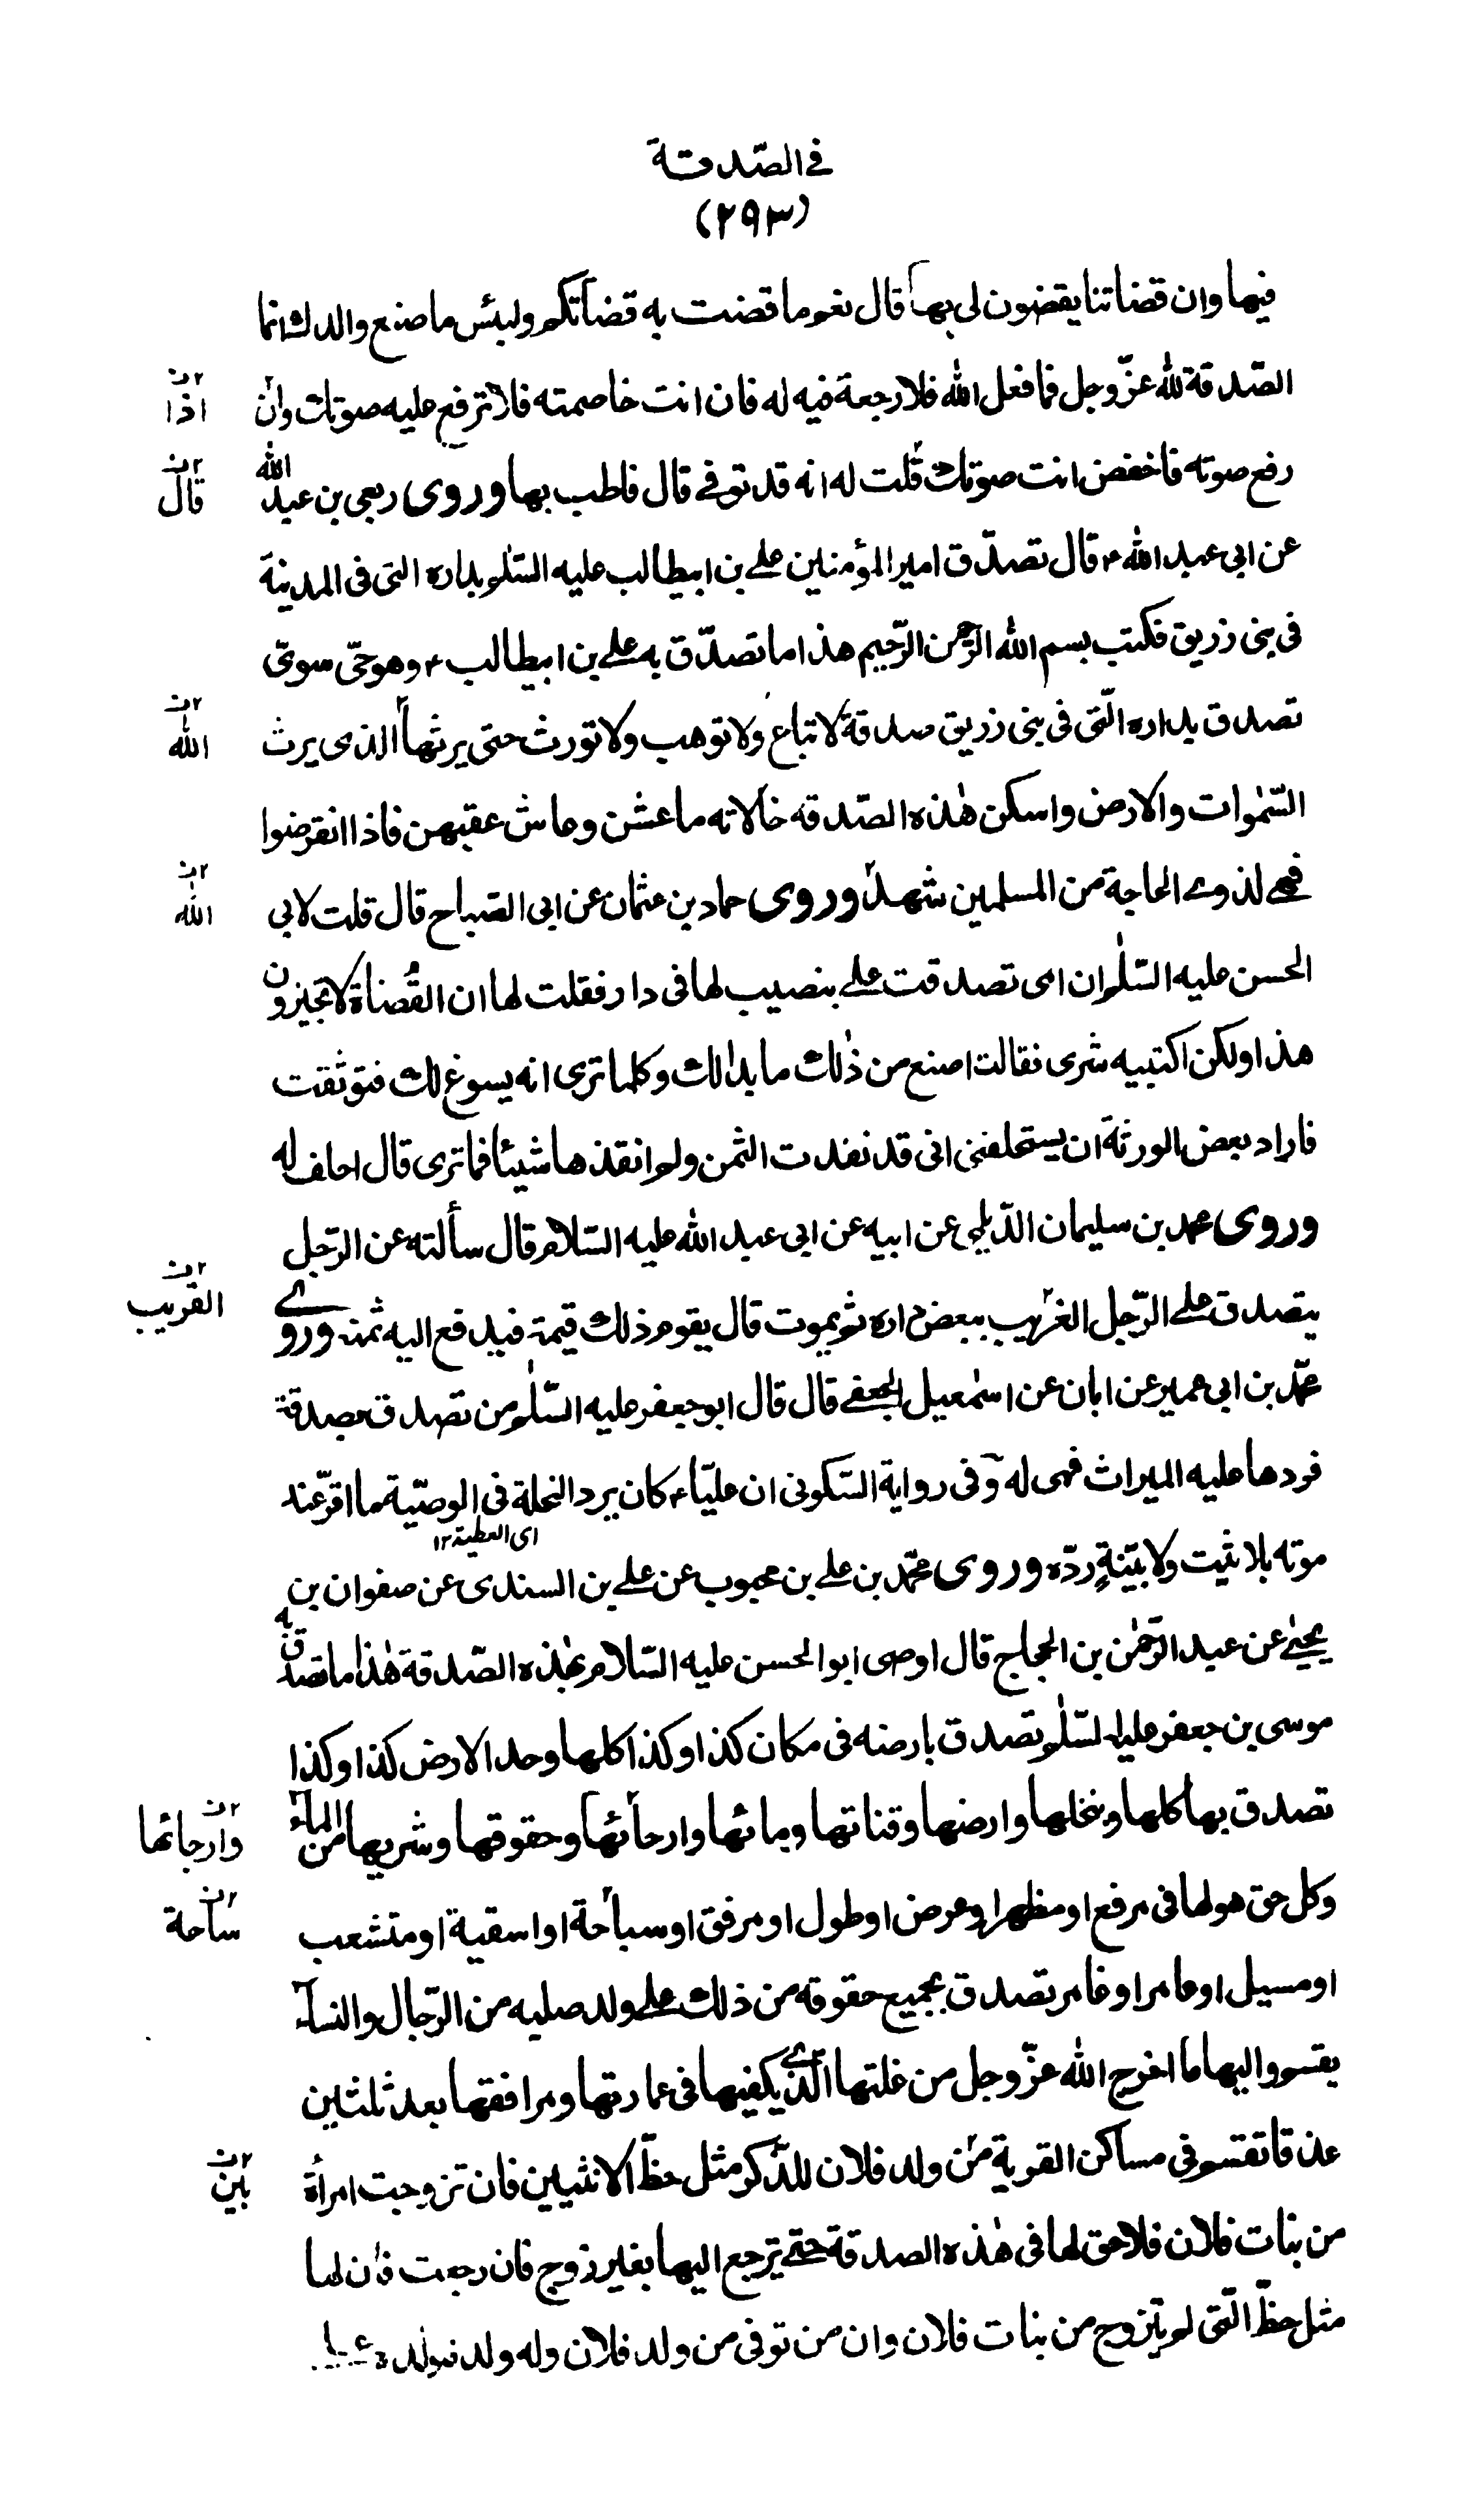 في الصّدقة
(٢٩٣)
فيها وان قضاتنا يقضون لى بها قال نعم ما قضت به قضاتكم ولبئس ما صنع والدك انما
الصّدقة لله عزّ وجل فما فعل الله فلا رجعة فيه له فان انت خاصمته فلا ترفع عليه صوتك وان
اذا
رفع صوته فاخفض انت صوتك قلت له انه قد توفي قال فاطب بها وروى ربعى بن عبد الله
قال
عن ابى عبد الله ع قال تصدّق امير المؤمنين علي بن ابيطالب عليه السّلم بداره التى فى المدينة
فى بنى زريق فكتب بسم الله الرّحمن الرّحيم هذا ما تصدّق به علي بن ابيطالب ع وهو حىّ سوىّ
تصدق بداره الّتى فى بنى زريق صدقة لا تباع ولا توهب ولا تورث حتى يرثها الذى يرث
الله
السّمٰوات والارض واسكن هٰذه الصّدقه خالاته ما عشن وعاش عقبهن فاذا انقرضوا
فهي لذوي الحاجة من المسلمين شهد وروى حماد بن عثمان عن ابى الصّباح قال قلت لابى
الله
الحسن عليه السّلم ان امى تصدقت علي بنصيب لها فى دار فقلت لها ان القُضاة لا تجيزون
هذا ولكن اكتبيه شرى فقالت اصنع من ذٰلك ما بدا لك وكلما ترى انه يسوغ لك فتوثقت
فاراد بعض الورثة ان يستحلفنى انى قد نفدت الثمن ولم انقذها شيئا فما ترى قال احلف له
وروى محمد بن سليمان الدّيلمي عن ابيه عن ابى عبد الله عليه السّلام قال سألته عن الرّجل
يتصدق علي الرّجل الغريب ببعض داره ثم يموت قال يقوم ذلك قيمة فيدفع اليه ثمنه وروي
القريب
محمّد بن ابى عمير عن ابان عن اسمٰعيل الجعفي قال قال ابو جعفر عليه السّلٰم من تصدق بصدقة
فردها عليه الميراث فهى له وفى رواية السّكونى ان عليّا ع كان يرد النحلة فى الوصيّة ما اقرّ عند
اى العطية ١٢
موته بلا ثبت ولا بيّنةٍ ردّه وروى محمّد بن علي بن محبوب عن علي بن السندى عن صفوان بن
يحيٰي عن عبد الرّحمٰن بن الحجاج قال اوصى ابو الحسن عليه السّلام بهٰذه الصّدقة هٰذا ما تصدق به
موسى بن جعفر عليه السّلم تصدق بارضه فى مكان كذا وكذا كلها وحد الارض كذا وكذا
تصدق بها كلها ونخلها وارضها وقناتها ومائها وارحائها وحقوقها وشربها من الماء
وارجائها
وكل حق هو لها فى مرفع او مظهر او عرض او طول او مرفق او سباحة او اسقية او متشعب
ساحة
او مسيل او عامر او غامر تصدق بجميع حقوقه من ذلك علي ولد صلبه من الرّجال والنساء
يقسم واليها ما اخرج الله عزّ وجل من غلتها الّذي يكفيها فى عمارتها ومرافقها بعد ثلثين
عذقا تقسم فى مساكن القرية من ولد فلان للذّكر مثل حظّ الانثيين فان تزوجت امرأة
بين
من بنات فلان فلا حق لها فى هٰذه الصدقة حتي ترجع اليها بغير زوج فان رجعت فان لها
مثل حظّ الّتى لم يتزوج من بنات فلان وان من توفى من ولد فلان وله ولد فولده